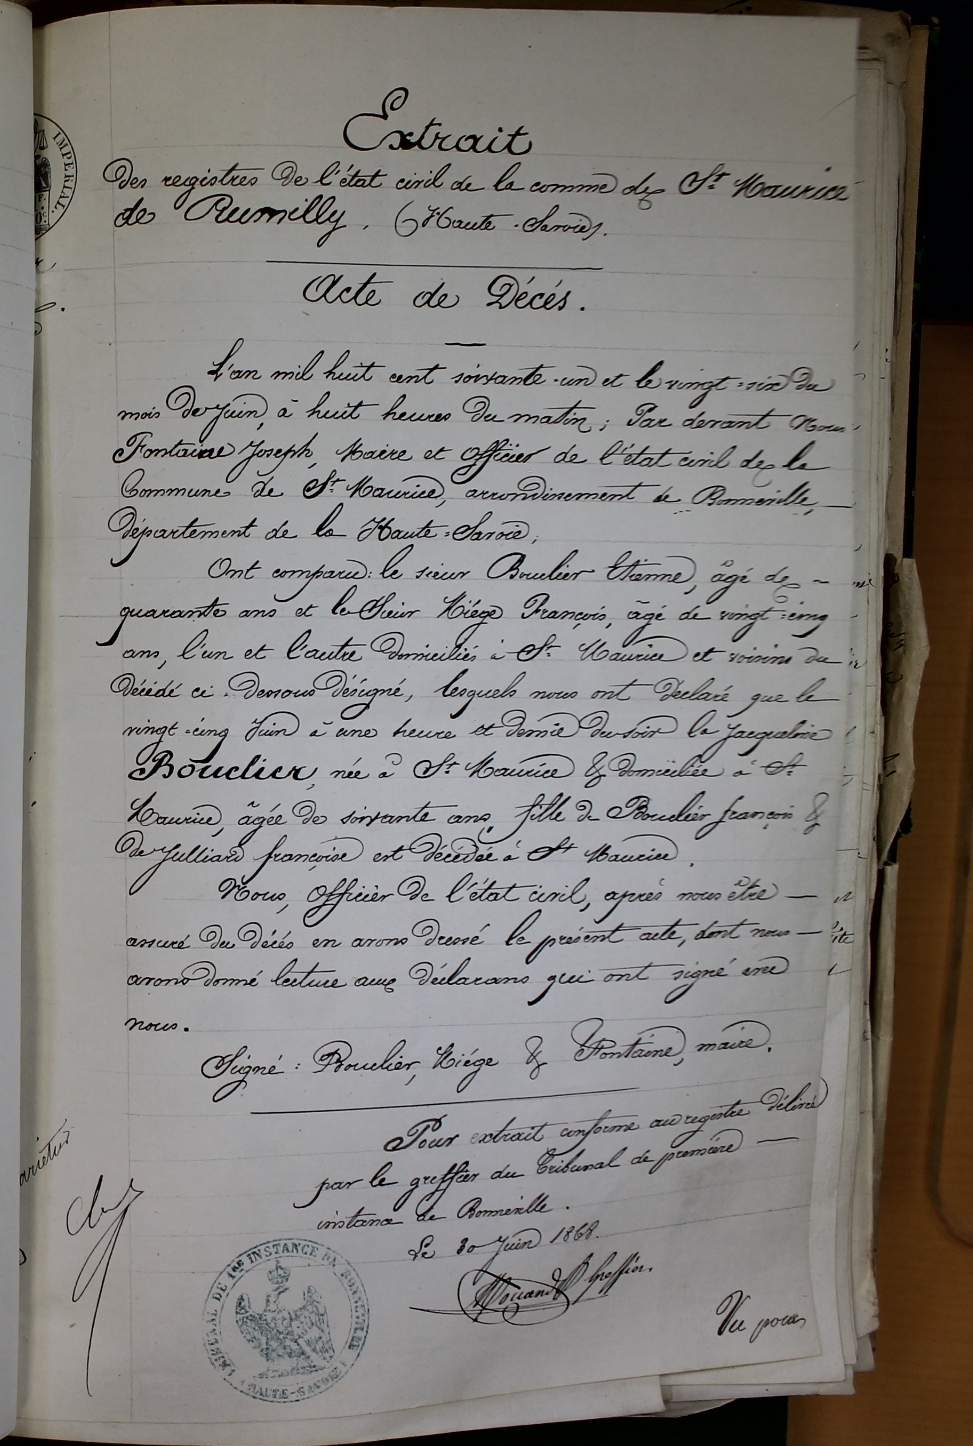 Extrait
des registres de l'état civil de la comme de St Maurice
de Rumilly, (Haute-Savoie).
Acte de Décés.
L'an mil huit cent soixante-un et le vingt-six du
mois de Juin, à huit heures du matin; Par devant Nous
Fontaine Joseph, Maire et Officier de l'état civil de la
Commune de St Maurice, arrondissement de Bonneville,
département de la Haute-Savoie,
Ont comparu: le sieur Bouclier Etienne, âgé de
quarante ans et le Sieur Miége François, âgé de vingt-cinq
ans, l'un et l'autre domiciliés à St Maurice et voisins du
décédé ci-dessous désigné, lesquels nous ont déclaré que le
vingt-cinq Juin à une heure et demie du soir la Jacqueline
Bouclier, née à St Maurice & domiciliée à St
Maurice, âgée de soixante ans, fille de Bouclier françois &
de Julliard françoise est décédée à St Maurice.
Nous, Officier de l'état civil, après nous être
assuré du décés en avons dressé le présent acte, dont nous
avons donné lecture aux déclarans qui ont signé avec
nous.
Signé: Bouclier, Miége & Fontaine, maire.
Pour extrait conforme au registre délivré
par le greffier du Tribunal de première
instance de Bonneville.
Le 30 Juin 1868.
Greffier.
Vu pour
TRIBUNAL DE 1ère INSTANCE DE BONNEVILLE
(HAUTE-SAVOIE)
IMPERIAL.